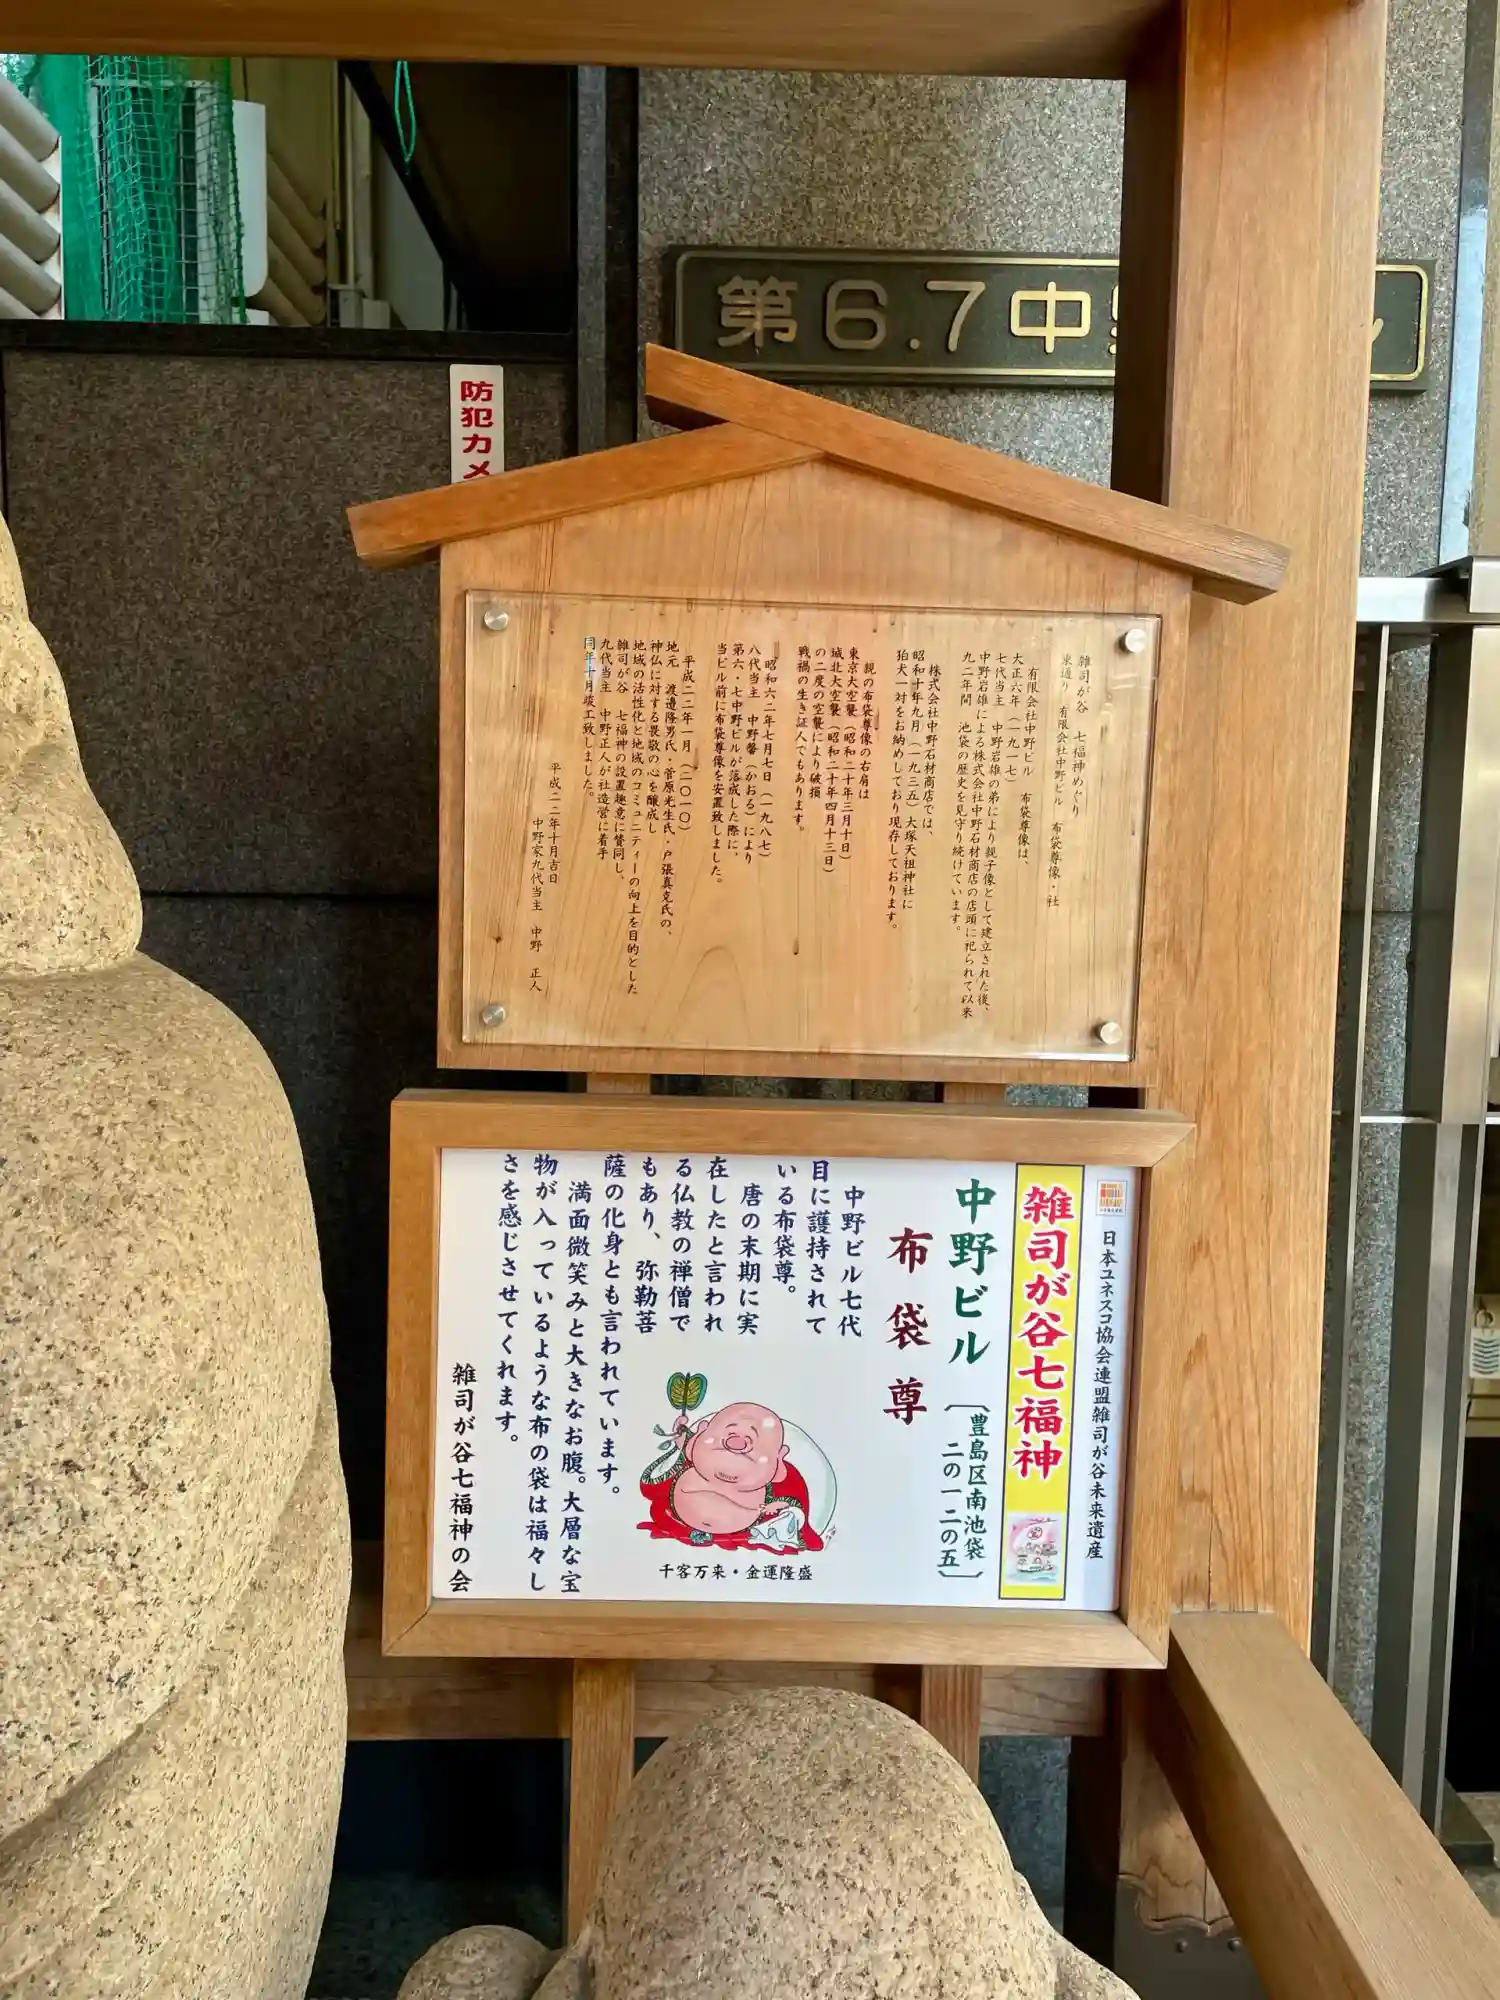 第6.7中
防犯カメ
雑司が谷 七福神めぐり
東通り 有限会社中野ビル 布袋尊像・社
有限会社中野ビル 布袋尊像は、
大正六年(一九一七)
七代当主 中野岩雄の弟により親子像として建立された後、
中野岩雄による株式会社中野石材商店の店頭に祀られて以来
九二年間 池袋の歴史を見守り続けています。
株式会社中野石材商店では、
昭和十年九月(一九三五)大塚天祖神社に
狛犬一対をお納めしており現存しております。
親の布袋尊像の右肩は
東京大空襲(昭和二十年三月十日)
城北大空襲(昭和二十年四月十三日)
の二度の空襲により破損
戦禍の生き証人でもあります。
昭和六二年七月七日(一九八七)
八代当主 中野馨(かおる)により
第六・七中野ビルが落成した際に、
当ビル前に布袋尊像を安置致しました。
平成二二年一月(二〇一〇)
地元 渡邉隆男氏・菅原光生氏・戸張真克氏の、
神仏に対する畏敬の心を醸成し
地域の活性化と地域のコミュニティーの向上を目的とした
雑司が谷 七福神の設置趣意に賛同し、
九代当主 中野正人が社造営に着手
同年十月竣工致しました。
平成二二年十月吉日
中野家九代当主 中野 正人
日本ユネスコ協会連盟雑司が谷未来遺産
雑司が谷七福神
中野ビル
〔豊島区南池袋
二の一二の五〕
布袋尊
中野ビル七代
目に護持されて
いる布袋尊。
唐の末期に実
在したと言われ
る仏教の禅僧で
もあり、弥勒菩
薩の化身とも言われています。
満面微笑みと大きなお腹。大層な宝
物が入っているような布の袋は福々し
さを感じさせてくれます。
雑司が谷七福神の会
千客万来・金運隆盛